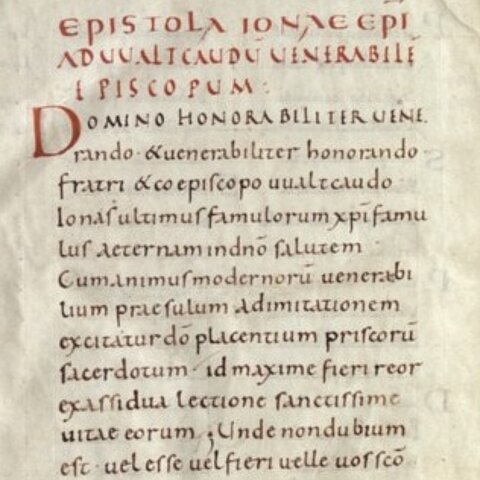 EPISTOLA IONAE EPĪ
AD UUALTCAUDŪ UENERABILĒ
EPISCOPUM:
DOMINO HONORABILITER UENE
rando · & uenerabiliter honorando ·
fratri & coepiscopo uualtcaudo
Ionas ultimus famulorum xpī famu
lus aeternam in dnō salutem ·
Cum animus modernorū uenerabi
lium praesulum ad imitationem
excitatur dō placentium priscorū
sacerdotum · id maxime fieri reor
ex assidua lectione sanctissime
uitae eorum ; Unde non dubium
est · uel esse uel fieri uelle uos scō